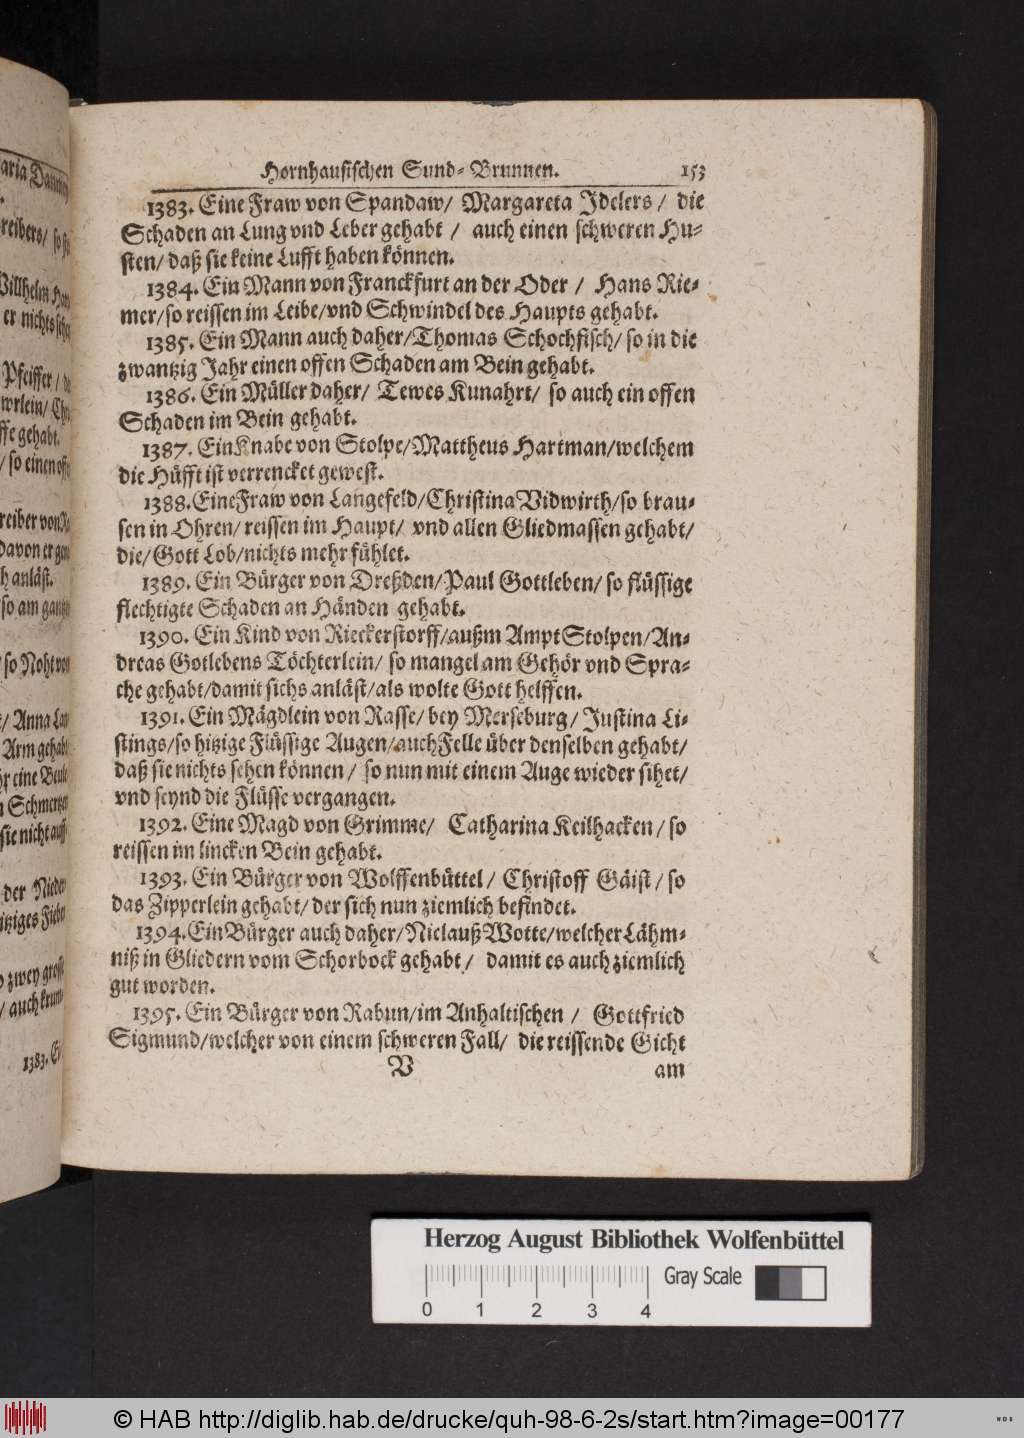 Hornhausischen Sund-Brunnen. 153
1383. Eine Fraw von Spandaw/ Margareta Jdelers / die
Schaden an Lung vnd Leber gehabt / auch einen schweren Hu-
sten/ daß sie keine Lufft haben können.
1384. Ein Mann von Franckfurt an der Oder / Hans Rie-
mer/so reissen im Leibe/vnd Schwindel des Haupts gehabt.
1385. Ein Mann auch daher/Thomas Schochfisch/ so in die
zwantzig Jahr einen offen Schaden am Bein gehabt.
1386. Ein Müller daher/ Tewes Kunahrt/ so auch ein offen
Schaden im Bein gehabt.
1387. Ein Knabe von Stolpe/Mattheus Hartman/welchem
die Hüfft ist verrencket gewest.
1388. Eine Fraw von Langefeld/Christina Vidwirth/so brau-
sen in Ohren/ reissen im Haupt/ vnd allen Gliedmassen gehabt/
die/ Gott Lob/nichts mehr fühlet.
1389. Ein Bürger von Dreßden/Paul Gottleben/ so flüssige
flechtigte Schaden an Händen gehabt.
1390. Ein Kind von Rieckerstorff/außm Ampt Stolpen/An-
dreas Gotlebens Töchterlein/ so mangel am Gehör vnd Spra-
che gehabt/damit sichs anläst/als wolte Gott helffen.
1391. Ein Mägdlein von Rasse/ bey Merseburg/ Justina Li-
stings/so hitzige Flüssige Augen/auch Felle über denselben gehabt/
daß sie nichts sehen können / so nun mit einem Auge wieder sihet/
vnd seynd die Flüsse vergangen.
1392. Eine Magd von Grimme/ Catharina Keilhacken / so
reissen im lincken Bein gehabt.
1393. Ein Bürger von Wolffenbüttel / Christoff Gäist / so
das Zipperlein gehabt/ der sich nun ziemlich befindet.
1394. Ein Bürger auch daher/Niclauß Wotte/welcher Lähm-
niß in Gliedern vom Schorbock gehabt / damit es auch ziemlich
gut worden.
1395. Ein Bürger von Rabun/im Anhaltischen / Gottfried
Sigmund/welcher von einem schweren Fall/ die reissende Gicht
V am
Herzog August Bibliothek Wolfenbüttel
Gray Scale
0 1 2 3 4
© HAB http://diglib.hab.de/drucke/quh-98-6-2s/start.htm?image=00177